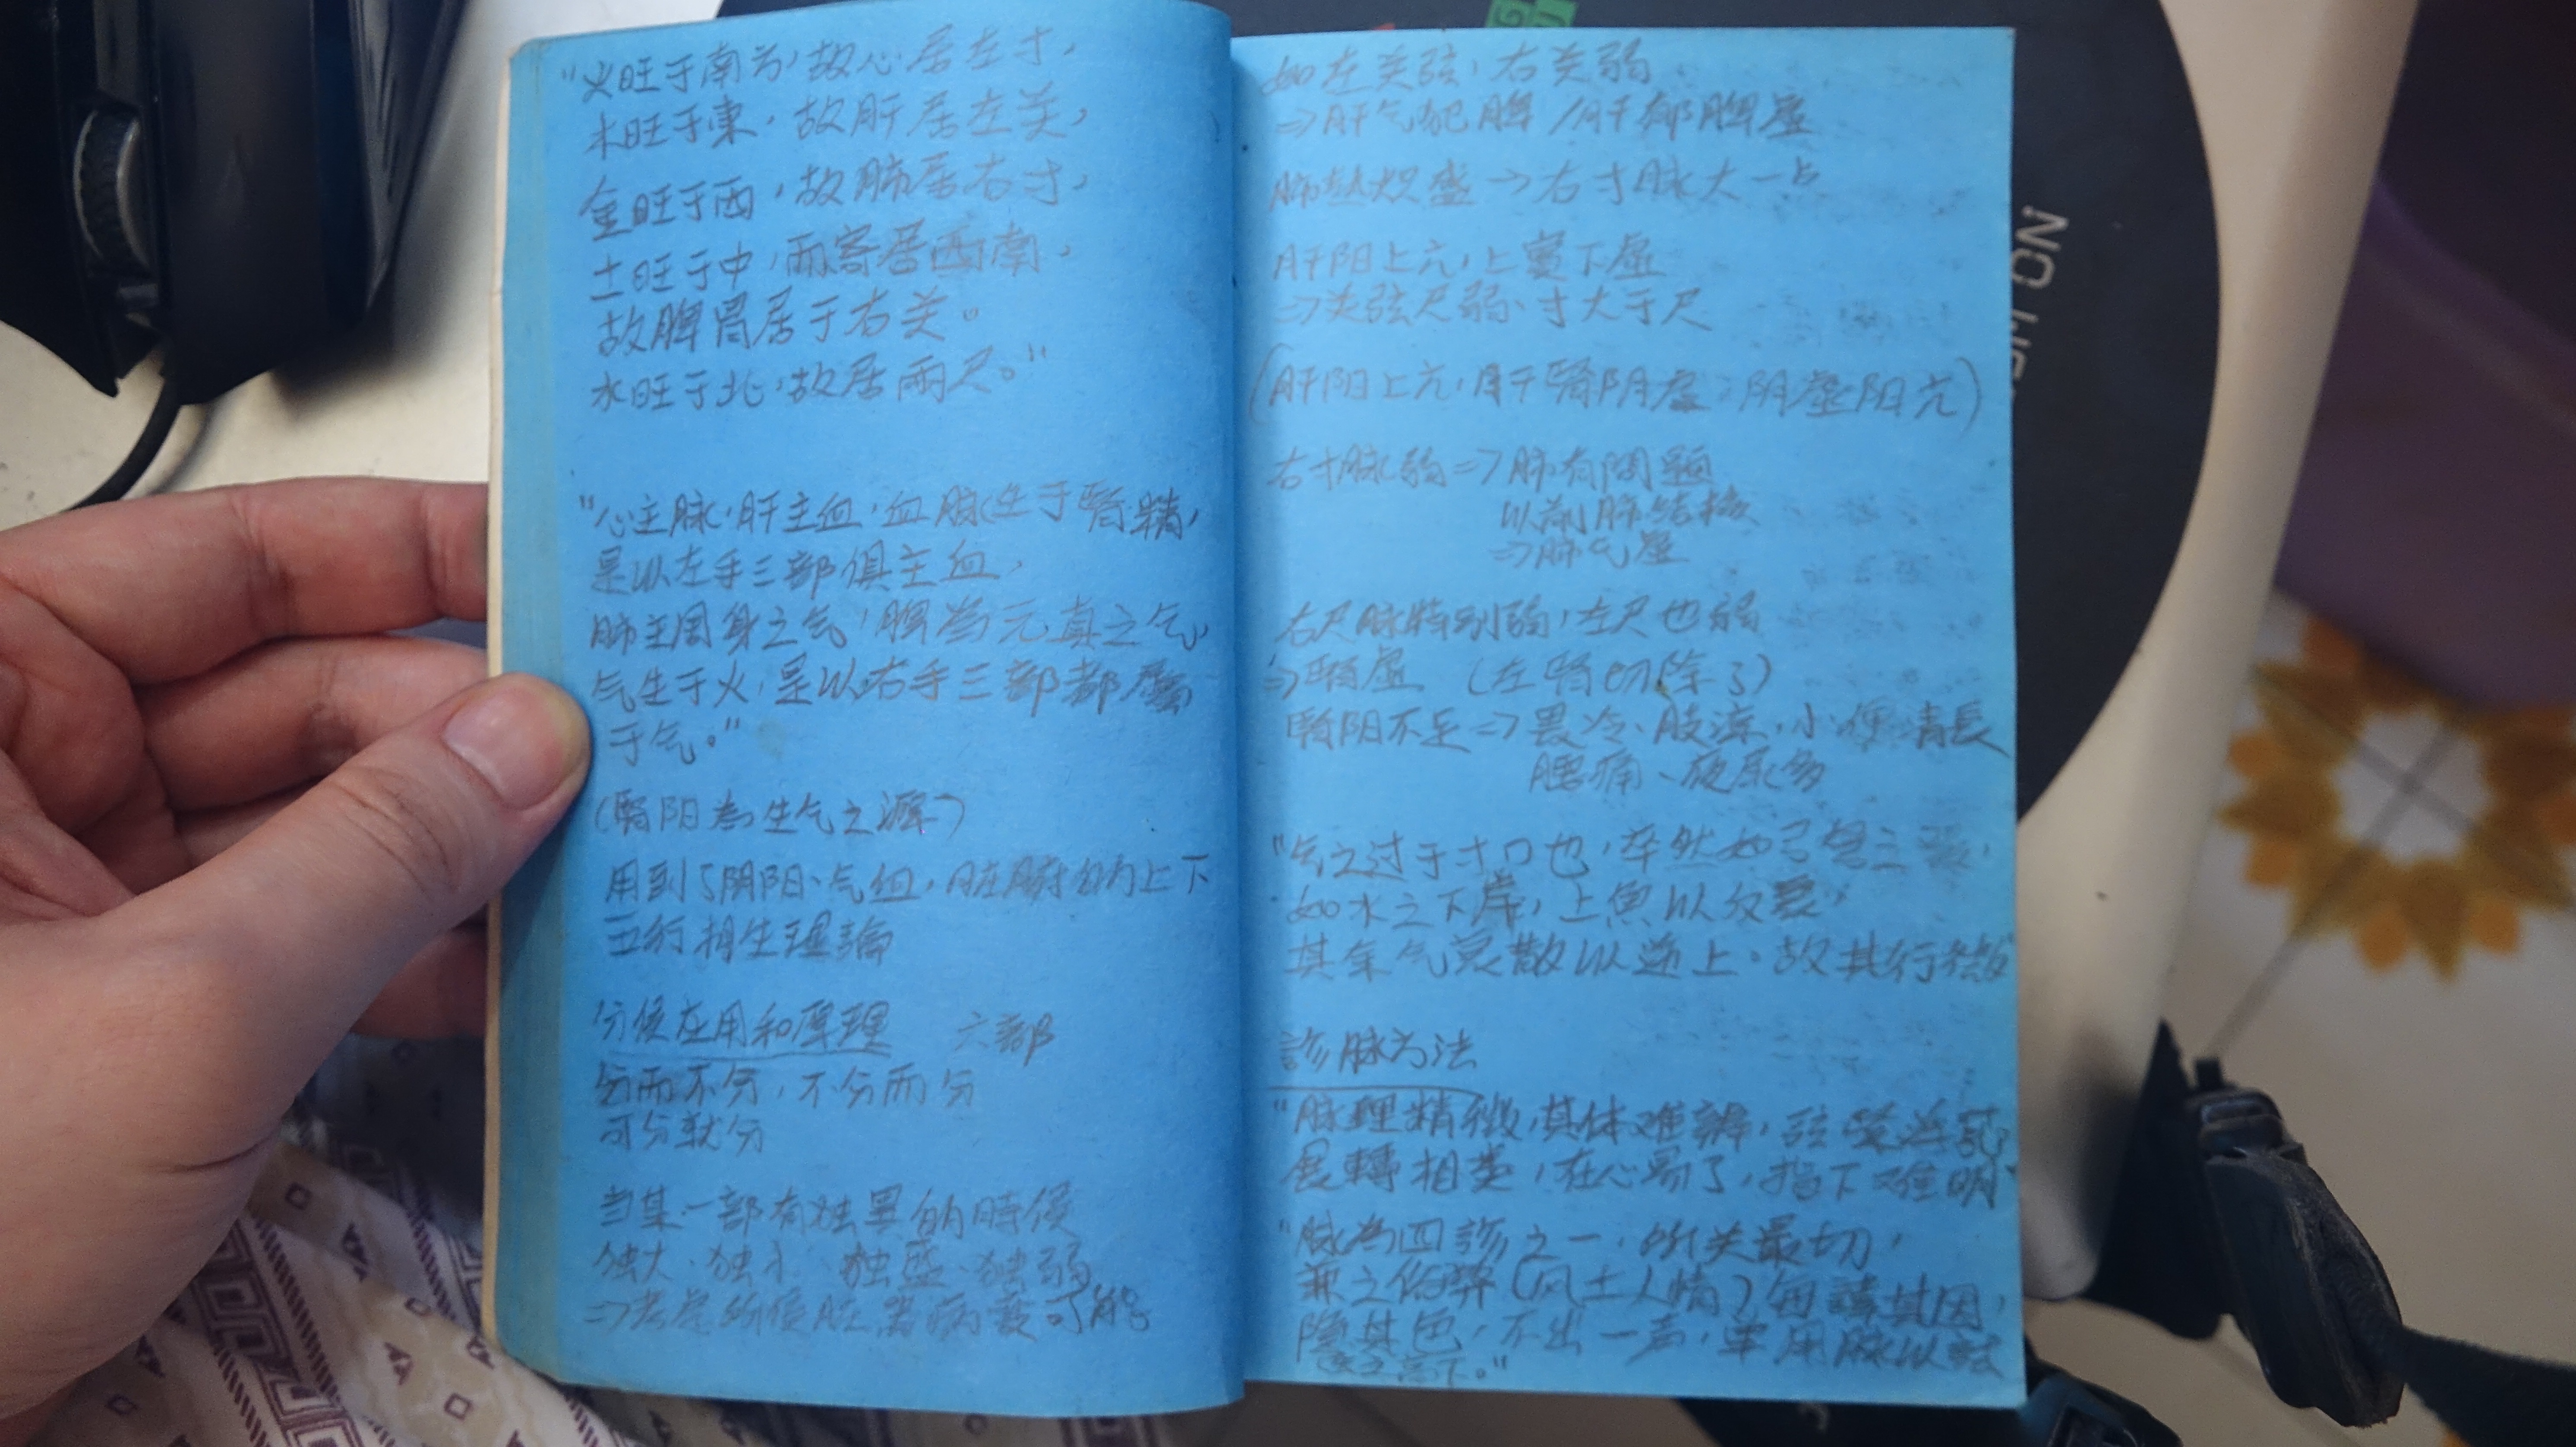 "火旺于南方,故心居左寸,
木旺于東,故肝居左关,
金旺于西,故肺居右寸,
土旺于中,而寄居西南,
故脾胃居于右关。
水旺于北,故居兩尺。"
"心主脉,肝主血,血脉生于腎精,
是以左手三部俱主血,
肺主周身之气,脾為元真之气,
气生于火,是以右手三部都屬
于气。"
(腎阳為生气之源)
用到了阴阳、气血,脏腑的上下
五行相生理論
分候应用和原理 六部
分而不分,不分而分
可分就分
当某一部有独異的時侯
独大、独小、独盛、独弱
⇒考虑所侯脏器病變可能
如左关弦,右关弱
⇒肝气犯脾/肝郁脾虛
肺熱炽盛→右寸脉大一点
肝阳上亢,上實下虛
⇒关弦尺弱、寸大于尺
(肝阳上亢,肝腎阴虛:阴虛阳亢)
右寸脉弱⇒肺有問題
以前肺结核
⇒肺气虛
右尺脉特别弱,左尺也弱
⇒腎虛 (左腎切除了)
腎阳不足⇒畏冷、肢涼、小便清長
腰痛、夜尿多
"气之过于寸口也,卒然如弓弩之發,
如水之下岸,上魚以反衰,
其余气衰散以逆上,故其行微
診脉方法
"脉理精微,其体难辨,弦緊浮芤,
展轉相类,在心易了,指下难明
"脉為四診之一,所关最切,
兼之俗弊(风土人情)每諱其因,
隐其色,不出一声,单用脉以
高下。"
NO